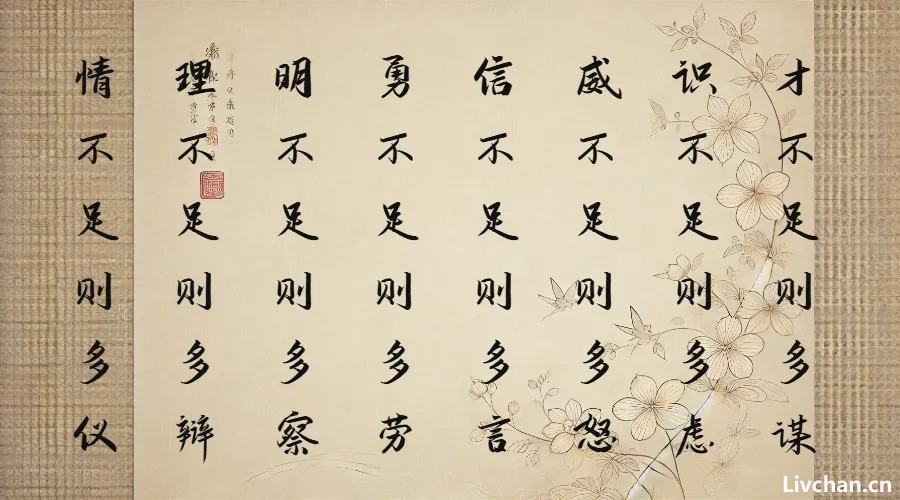 才不足则多谋
识不足则多虑
威不足则多怒
信不足则多言
勇不足则多劳
明不足则多察
理不足则多辩
情不足则多仪
Livchan.cn